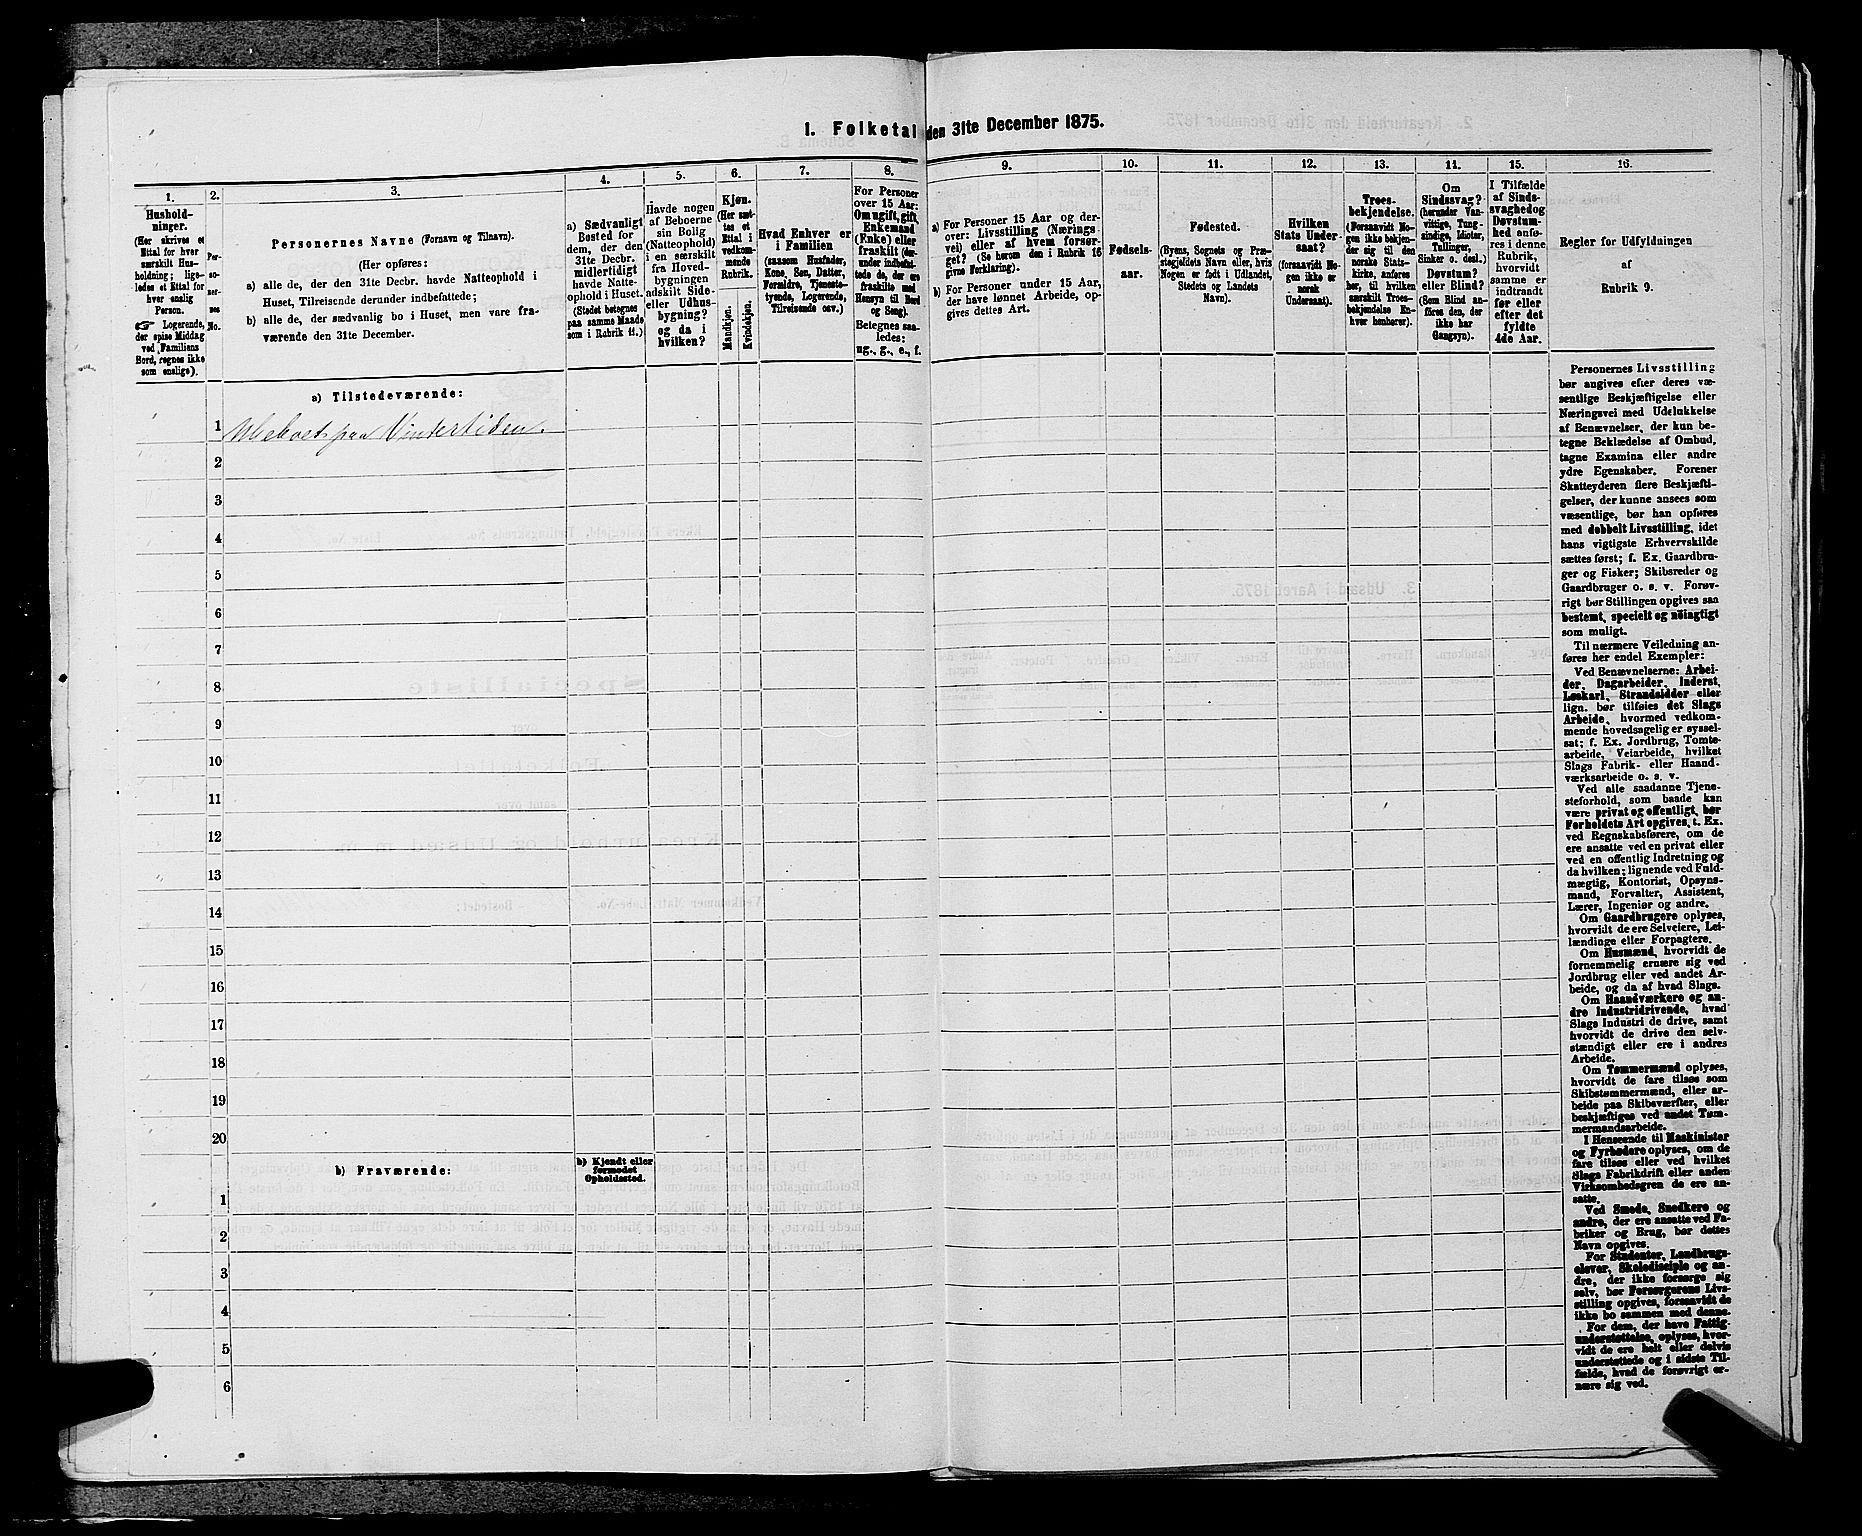 1. Folketal den 31te December 1875.
1.
Hushold-
ninger.
(Her skrives et
Ettal for hver
særskilt Hus-
holdning; lige-
ledes et Ettal for
hver enslig
Person.
☞ Logerende,
der spise Middag
ved Familiens
Bord, regnes ikke
som enslige).
2.
Per-
so-
nes
No.
3.
Personernes Navne (Fornavn og Tilnavn).
(Her opføres:
a) alle de, der den 31te Decbr. havde Natteophold i
Huset, Tilreisende derunder indbefattede;
b) alle de, der sædvanlig bo i Huset, men vare fra-
værende den 31te December.
4.
a) Sædvanligt
Bosted for
dem, der den
31te Decbr.
midlertidigt
havde Natte-
ophold i Huset.
(Stedet betegnes
paa samme Maade
som i Rubrik 11.)
5.
Havde nogen
af Beboerne
sin Bolig
(Natteophold)
i en særskilt
fra Hoved-
bygningen
adskilt Side-
eller Udhus-
bygning?
og da i
hvilken?
6.
Kjøn.
(Her sæt-
tes et
Ettal i
vedkom-
mende
Rubrik.
Mandkjøn.
Kvindekjøn.
7.
Hvad Enhver er
i Familien
(saasom Husfader,
Kone, Søn, Datter,
Forældre, Tjeneste-
tyende, Logerende,
Tilreisende osv.)
8.
For Personer
over 15 Aar:
Om ugift, gift,
Enkemand
(Enke) eller
fraskilt (her-
under indbefat-
tede de, der ere
fraskilte med
Hensyn til Bord
og Seng).
Betegnes saa-
ledes:
ug., g., e., f.
9.
a) For Personer 15 Aar og der-
over: Livsstilling (Nærings-
vei) eller af hvem forsør-
get? (Se herom den i Rubrik 16
givne Forklaring).
b) For Personer under 15 Aar,
der have lønnet Arbeide, op-
gives dettes Art.
10.
Fødsels-
aar.
11.
Fødested.
(Byens, Sognets og Præ-
stegjeldets Navn eller, hvis
Nogen er født i Udlandet,
Stedets og Landets
Navn).
12.
Hvilken
Stats Under-
saat?
(forsaavidt No-
gen ikke er
norsk
Undersaat).
13.
Troes-
bekjendelse.
(Forsaavidt No-
gen ikke bekjen-
der sig til den
norske Stats-
kirke, anføres
her, til hvilken
særskilt Troes-
bekjendelse En-
hver henhører).
14.
Om
Sindssvag?
(herunder Van-
vittige, Tung-
sindige, Idioter,
Tullinger,
Sinker o. desl.)
Døvstum?
eller Blind?
(Som Blind an-
føres den, der
ikke har
Gangsyn).
15.
I Tilfælde
af Sinds-
svaghed og
Døvstum-
hed anfø-
res i denne
Rubrik,
hvorvidt
samme er
indtraadt
før eller
efter det
fyldte
4de Aar.
16.
Regler for Udfyldningen
af
Rubrik 9.
a) Tilstedeværende:
1 Ubeboet paa Vintertiden.
2
3
4
5
6
7
8
9
10
11
12
13
14
15
16
17
18
19
20
b) Fraværende:
b) Kjendt eller
formodet
Opholdssted.
1
2
3
4
5
6
Personernes Livsstilling
bør angives efter deres væ-
sentlige Beskjæftigelse eller
Næringsvei med Udelukkelse
af Benævnelser, der kun be-
tegne Beklædelse af Ombud,
tagne Examina eller andre
ydre Egenskaber. Forener
Skatteyderen flere Beskjæfti-
gelser, der kunne ansees som
væsentlige, bør han opføres
med dobbelt Livsstilling, idet
hans vigtigste Erhvervskilde
sættes først; f. Ex. Gaardbru-
ger og Fisker; Skibsreder og
Gaardbruger o. s. v. Forøv-
rigt bør Stillingen opgives saa
bestemt, specielt og nøiagtigt
som muligt.
Til nærmere Veiledning an-
føres her endel Exempler:
Ved Benævnelserne: Arbei-
der, Dagarbeider, Inderst,
Løskarl, Strandsidder eller
lign. bør tilføies det Slags
Arbeide, hvormed vedkom-
mende hovedsagelig er syssel-
sat; f. Ex. Jordbrug, Tomte-
arbeide, Veiarbeide, hvilket
Slags Fabrik- eller Haand-
værksarbeide o. s. v.
Ved alle saadanne Tjene-
steforhold, som baade kan
være privat og offentligt, bør
Forholdets Art opgives, t. Ex.
ved Regnskabsførere, om de
ere ansatte ved en privat eller
ved en offentlig Indretning og
da hvilken; lignende ved Fuld-
mægtig, Kontorist, Opsyns-
mand, Forvalter, Assistent,
Lærer, Ingeniør og andre.
Om Gaardbrugere oplyses,
hvorvidt de ere Selveiere, Lei-
lændinge eller Forpagtere.
Om Husmænd, hvorvidt de
fornemmelig ernære sig ved
Jordbrug eller ved andet Ar-
beide, og da af hvad Slags.
Om Haandværkere og an-
dre Industridrivende, hvad
Slags Industri de drive, samt
hvorvidt de drive den selv-
stændigt eller ere i andres
Arbeide.
Om Tømmermænd oplyses,
hvorvidt de fare tilsøs som
Skibstømmermænd, eller ar-
beide paa Skibsværfter, eller
beskjæftiges ved andet Tøm-
mermandsarbeide.
I Henseende til Maskinister
og Fyrbødere oplyses, om de
fare tilsøs eller ved hvilket
Slags Fabrikdrift eller anden
Virksomhedsgren de ere an-
satte.
Ved Smede, Snedkere og
andre, der ere ansatte ved Fa-
briker og Brug, bør dettes
Navn opgives.
For Studenter, Landbrugs-
elever, Skoledisciple og an-
dre, der ikke forsørge sig
selv, bør Forsørgerens Livs-
stilling opgives, forsaavidt de
ikke bo sammen med denne.
For dem, der have Fattig-
understøttelse, oplyses, hvor-
vidt de ere helt eller delvis
understøttede og i sidste Til-
fælde, hvad de forøvrigt er-
nære sig ved.